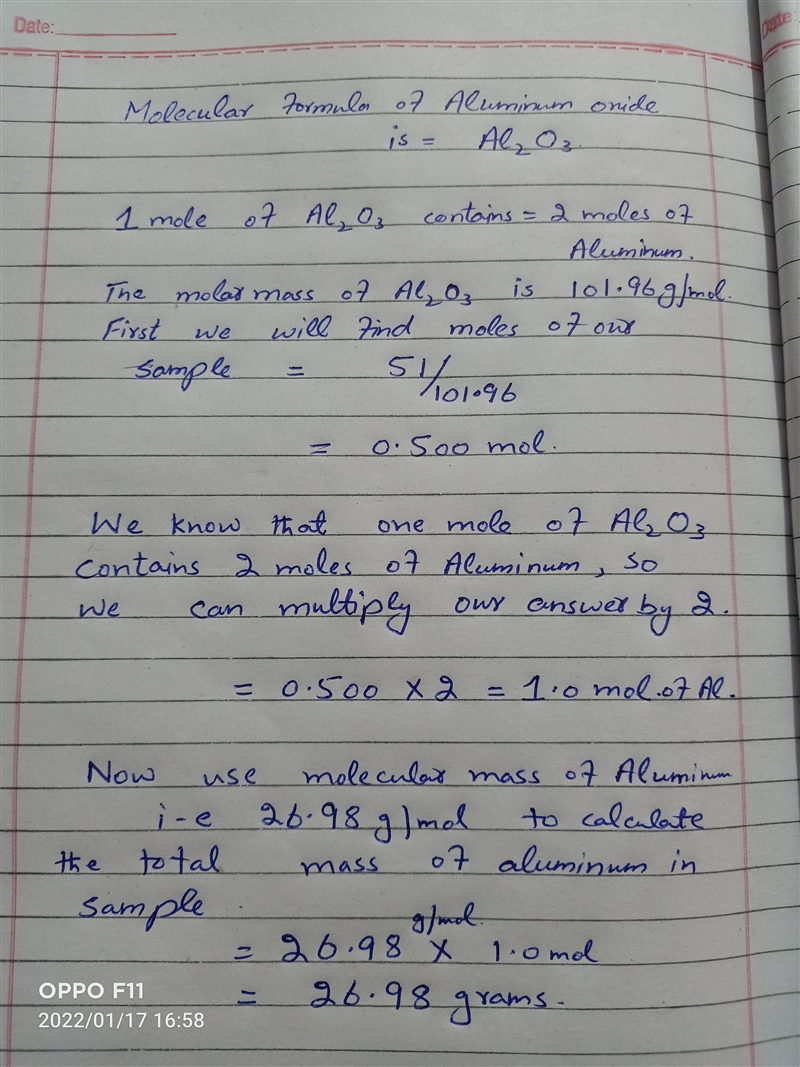 Date:
Date
Molecular Formula of Aluminum oxide
is = Al₂O₃
1 mole of Al₂O₃ contains = 2 moles of
Aluminum.
The molar mass of Al₂O₃ is 101.96 g/mol.
First we will Find moles of our
sample = 51/101.96
= 0.500 mol.
We know that one mole of Al₂O₃
contains 2 moles of Aluminum, so
we can multiply our answer by 2.
= 0.500 × 2 = 1.0 mol. of Al.
Now use molecular mass of Aluminum
i-e 26.98 g/mol to calculate
the total mass of aluminum in
sample
= 26.98 g/mol. × 1.0 mol
= 26.98 grams.
OPPO F11
2022/01/17 16:58